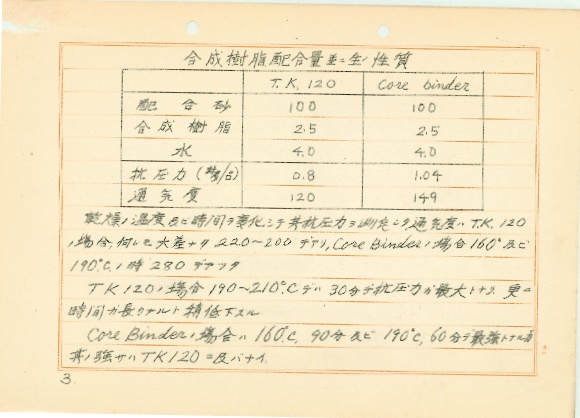 合成樹脂配合量並ニ生ノ性質
T.K. 120 Core binder
配合砂 100 100
合成樹脂 2.5 2.5
水 4.0 4.0
抗圧力 0.8 1.04
通気度 120 149
乾燥ノ温度及ビ時間ヲ変化シテ其抗圧力ヲ測定シタ通気度ハ T.K. 120
ノ場合、何レモ大差ナク 220~200 デアリ、Core Binderノ場合 160° 及ビ
190℃ノ時 280 デアッタ
TK 120ノ場合 190~210℃デハ 30分デ抗圧力ガ最大トナリ 更ニ
時間ガ長クナルト稍低下スル
Core Binderノ場合ハ 160℃, 90分 及ビ 190℃, 60分デ最強トナルガ
其ノ強サハ TK120ニ及バナイ
3.